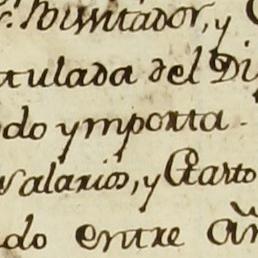 r. Visitador, y
tulada del Di
do ymporta.
salarios, y Quarto
do entre añ